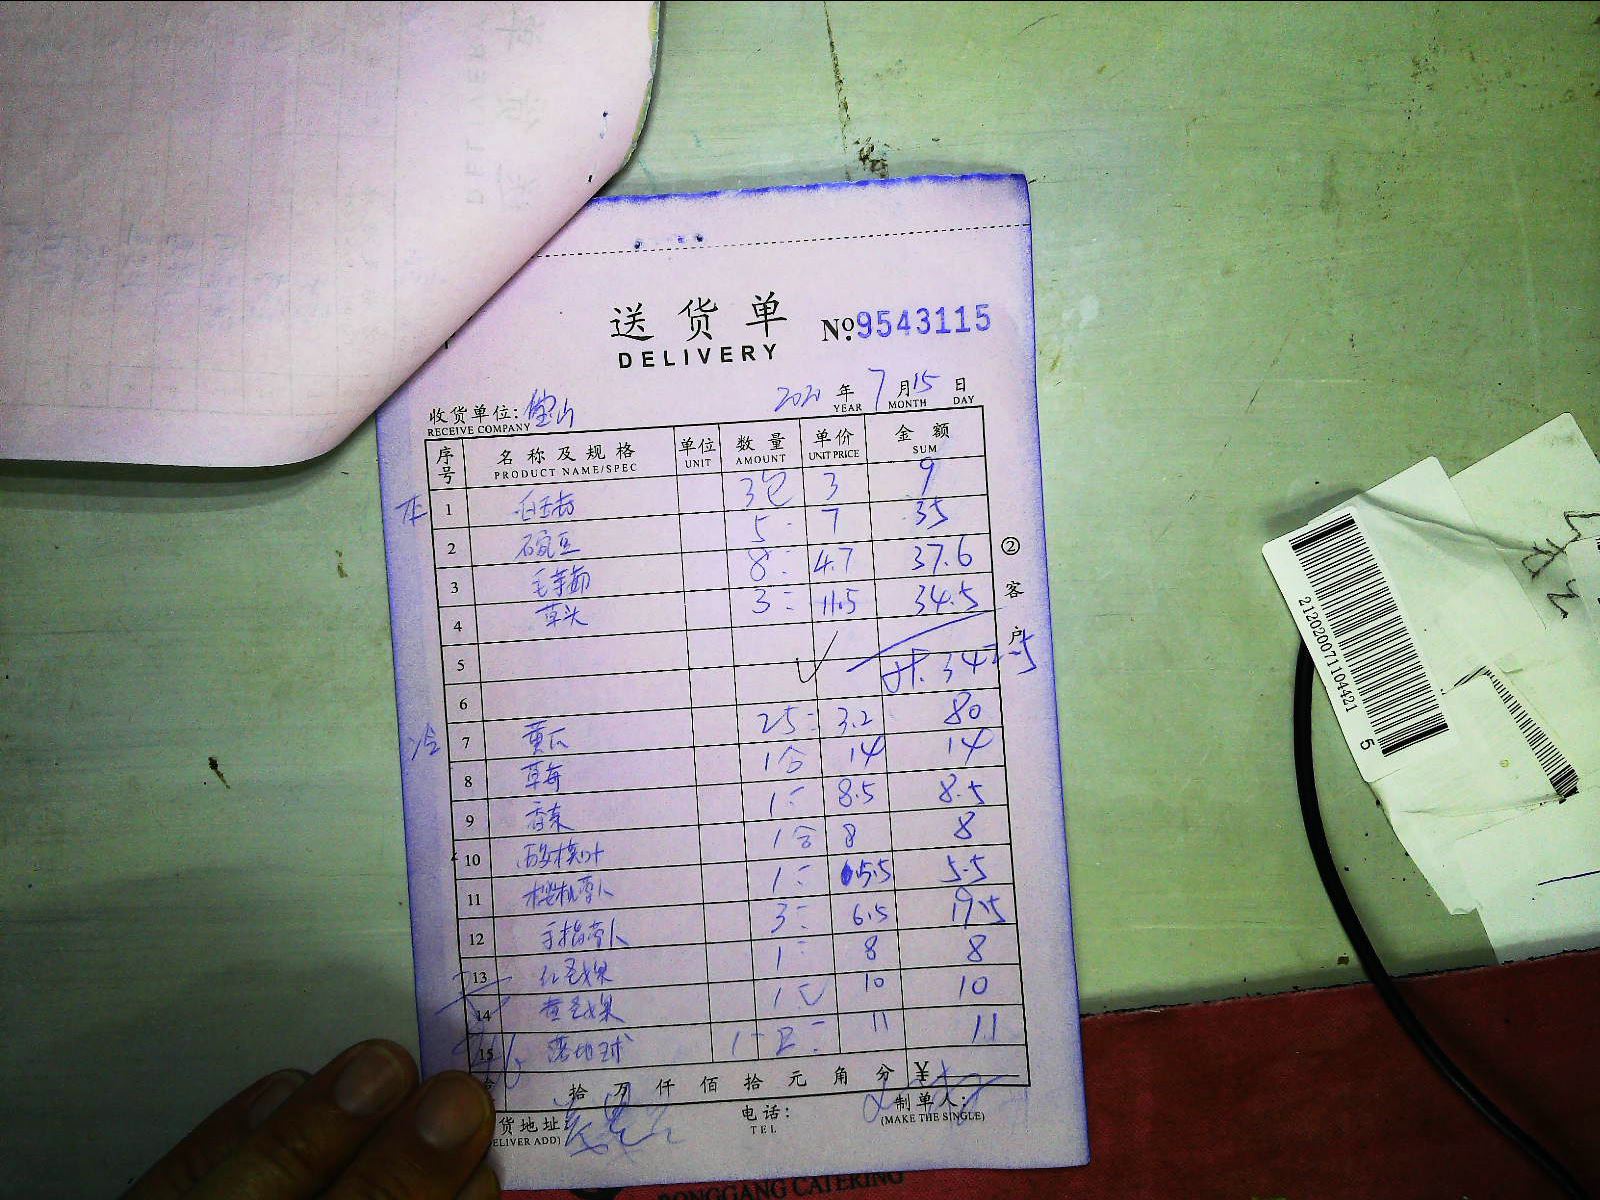 送货单
DELIVERY
No.9543115
2020年7月15日
YEAR MONTH DAY
收货单位:宝山
RECEIVE COMPANY
序号 名称及规格 单位 数量 单价 金额
PRODUCT NAME/SPEC UNIT AMOUNT UNIT PRICE SUM
1 白玉菇 3包 3 9
2 豌豆 5 7 35
3 毛芋艿 8 4.7 37.6
4 草头 3 11.5 34.5
5
6
冷 7 黄瓜 25 3.2 80
8 草莓 1合 14 14
9 香菜 1 8.5 8.5
10 酸模叶 1合 8 8
11 樱桃萝卜 1 5.5 5.5
12 手指萝卜 3 6.5 19.5
13 红圣女果 1 8 8
14 黄圣女果 1 10 10
15 11 11
②客户
拾万仟佰拾元角分 ¥
货地址:
ELIVER ADD)
电话:
TEL
制单人:
(MAKE THE SINGLE)
2120200711104421
5
RONGGANG CATERING